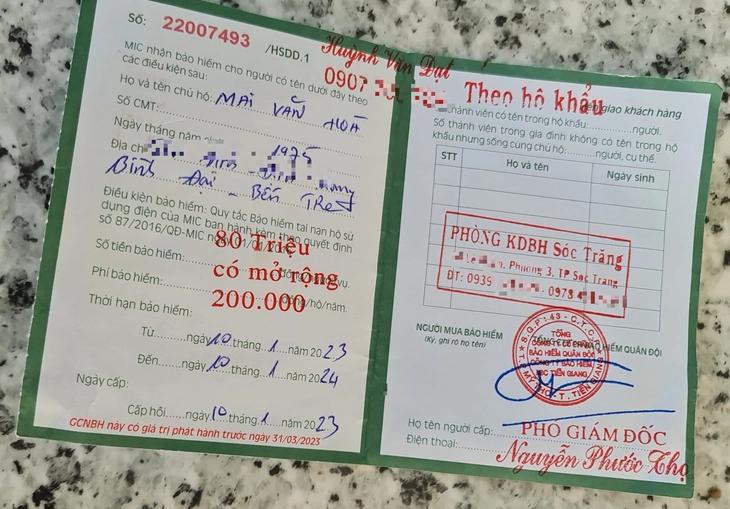 Số: 22007493 /HSDD.1
Huỳnh Văn Đạt
0907
MIC nhận bảo hiểm cho người có tên dưới đây theo
các điều kiện sau:
Họ và tên chủ hộ: MAI VĂN HOÀ
Số CMT:
Ngày tháng năm 1975
Địa chỉ
Bình Đại - Bến Tre
Điều kiện bảo hiểm: Quy tắc Bảo hiểm tai nạn hộ sử
dụng điện của MIC ban hành kèm theo quyết định
số 87/2016/QĐ-MIC ngày
80 Triệu
Số tiền bảo hiểm:
có mở rộng
Phí bảo hiểm: đồng/hộ/năm.
200.000
Thời hạn bảo hiểm:
Từ......ngày 10 tháng 1 năm 2023
Đến......ngày 10 tháng 1 năm 2024
Ngày cấp:
Cấp hồi......ngày 10 tháng 1 năm 2023
GCNBH này có giá trị phát hành trước ngày 31/03/2023
giao khách hàng
Theo hộ khẩu
thành viên có tên trong hộ khẩu:......người.
Số thành viên trong gia đình không có tên trong hộ
khẩu nhưng sống cùng chủ hộ:......người, cụ thể.
STT Họ và tên Ngày sinh
PHÒNG KDBH Sóc Trăng
Phường 3, TP Sóc Trăng
ĐT: 0939 0978
NGƯỜI MUA BẢO HIỂM
(Ký, ghi rõ họ tên)
BẢO HIỂM QUÂN ĐỘI
S.G.P: 43 - C.T.C.P
TỔNG
CÔNG TY CỔ PHẦN
BẢO HIỂM QUÂN ĐỘI
CÔNG TY BẢO HIỂM
MIC TIỀN GIANG
MỸ THO - T. TIỀN GIANG
Họ tên người cấp: PHÓ GIÁM ĐỐC
Điện thoại: Nguyễn Phước Thọ